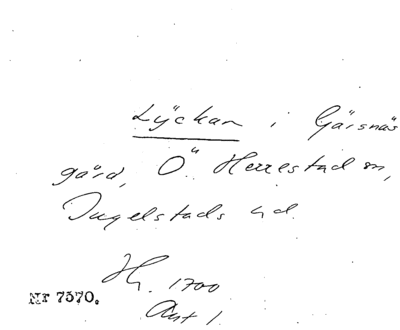 Lyckan i Gärsnäs
gård, Ö. Herrestad sn,
Ingelstads hd.
Hs. 1700
Ant 1.
Nr 7370.